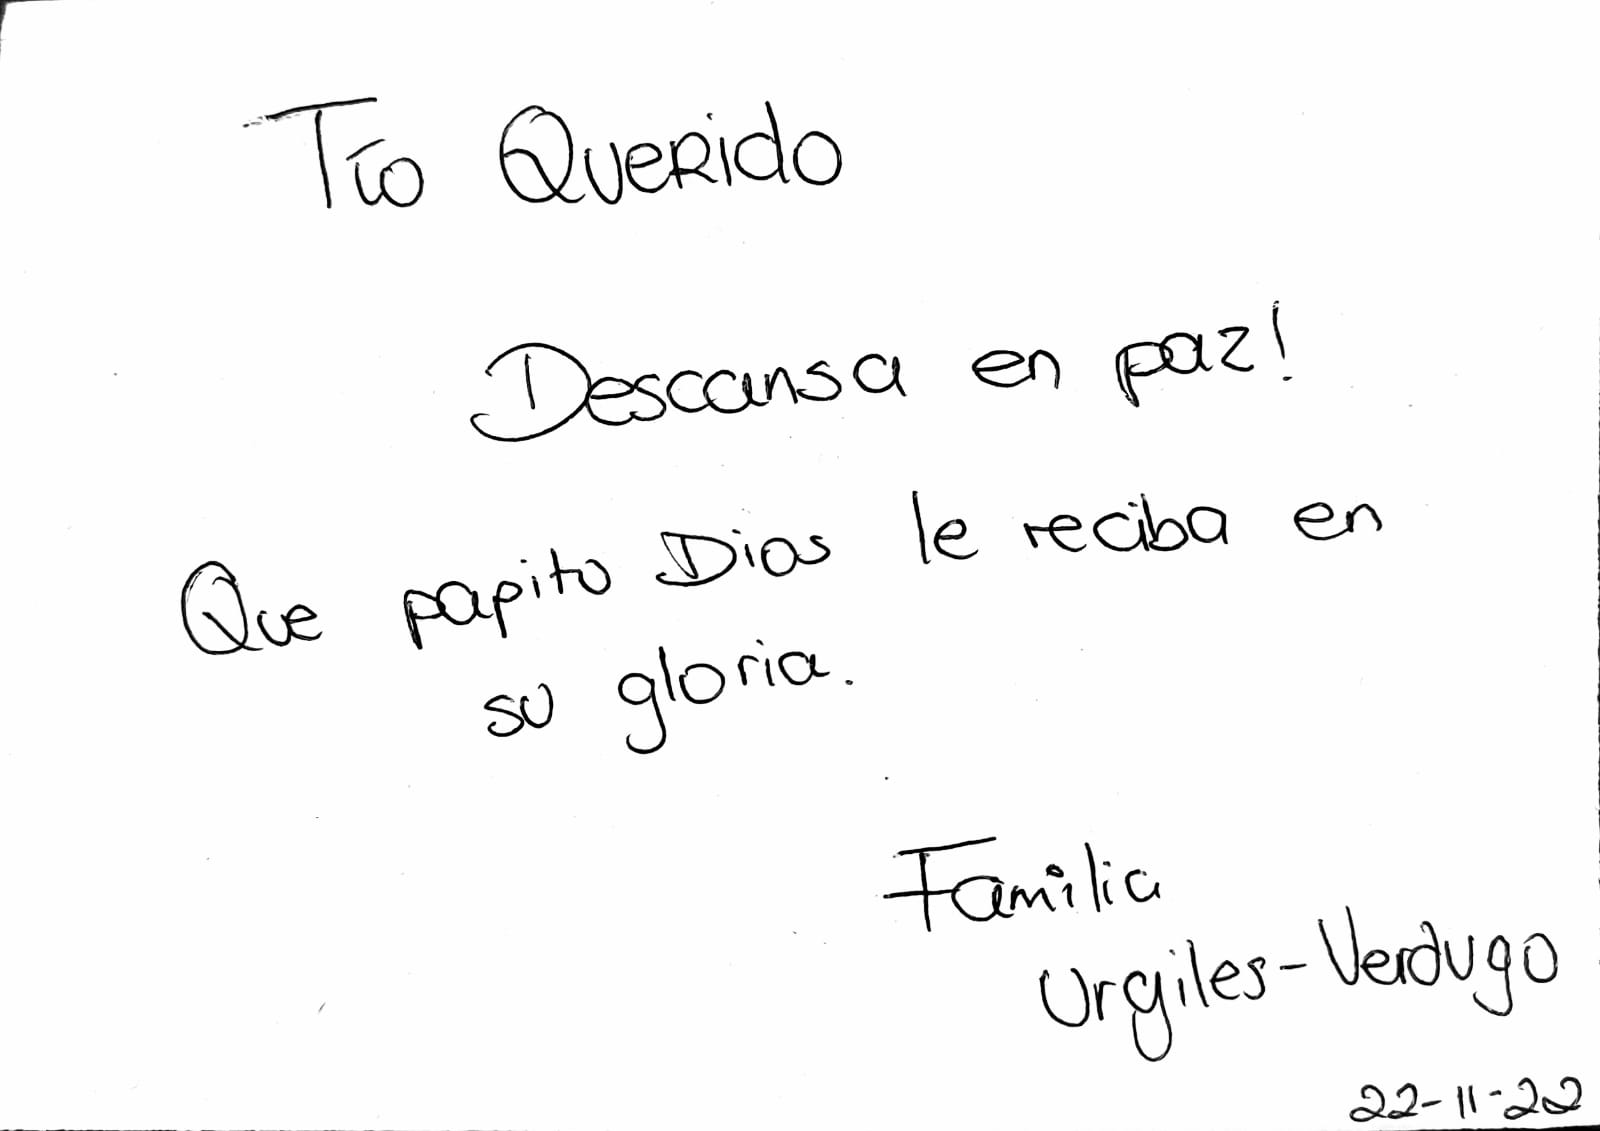 Tío Querido
Descansa en paz!
Que papito Dios le reciba en
su gloria.
Familia
Urgiles-Verdugo
22-11-22